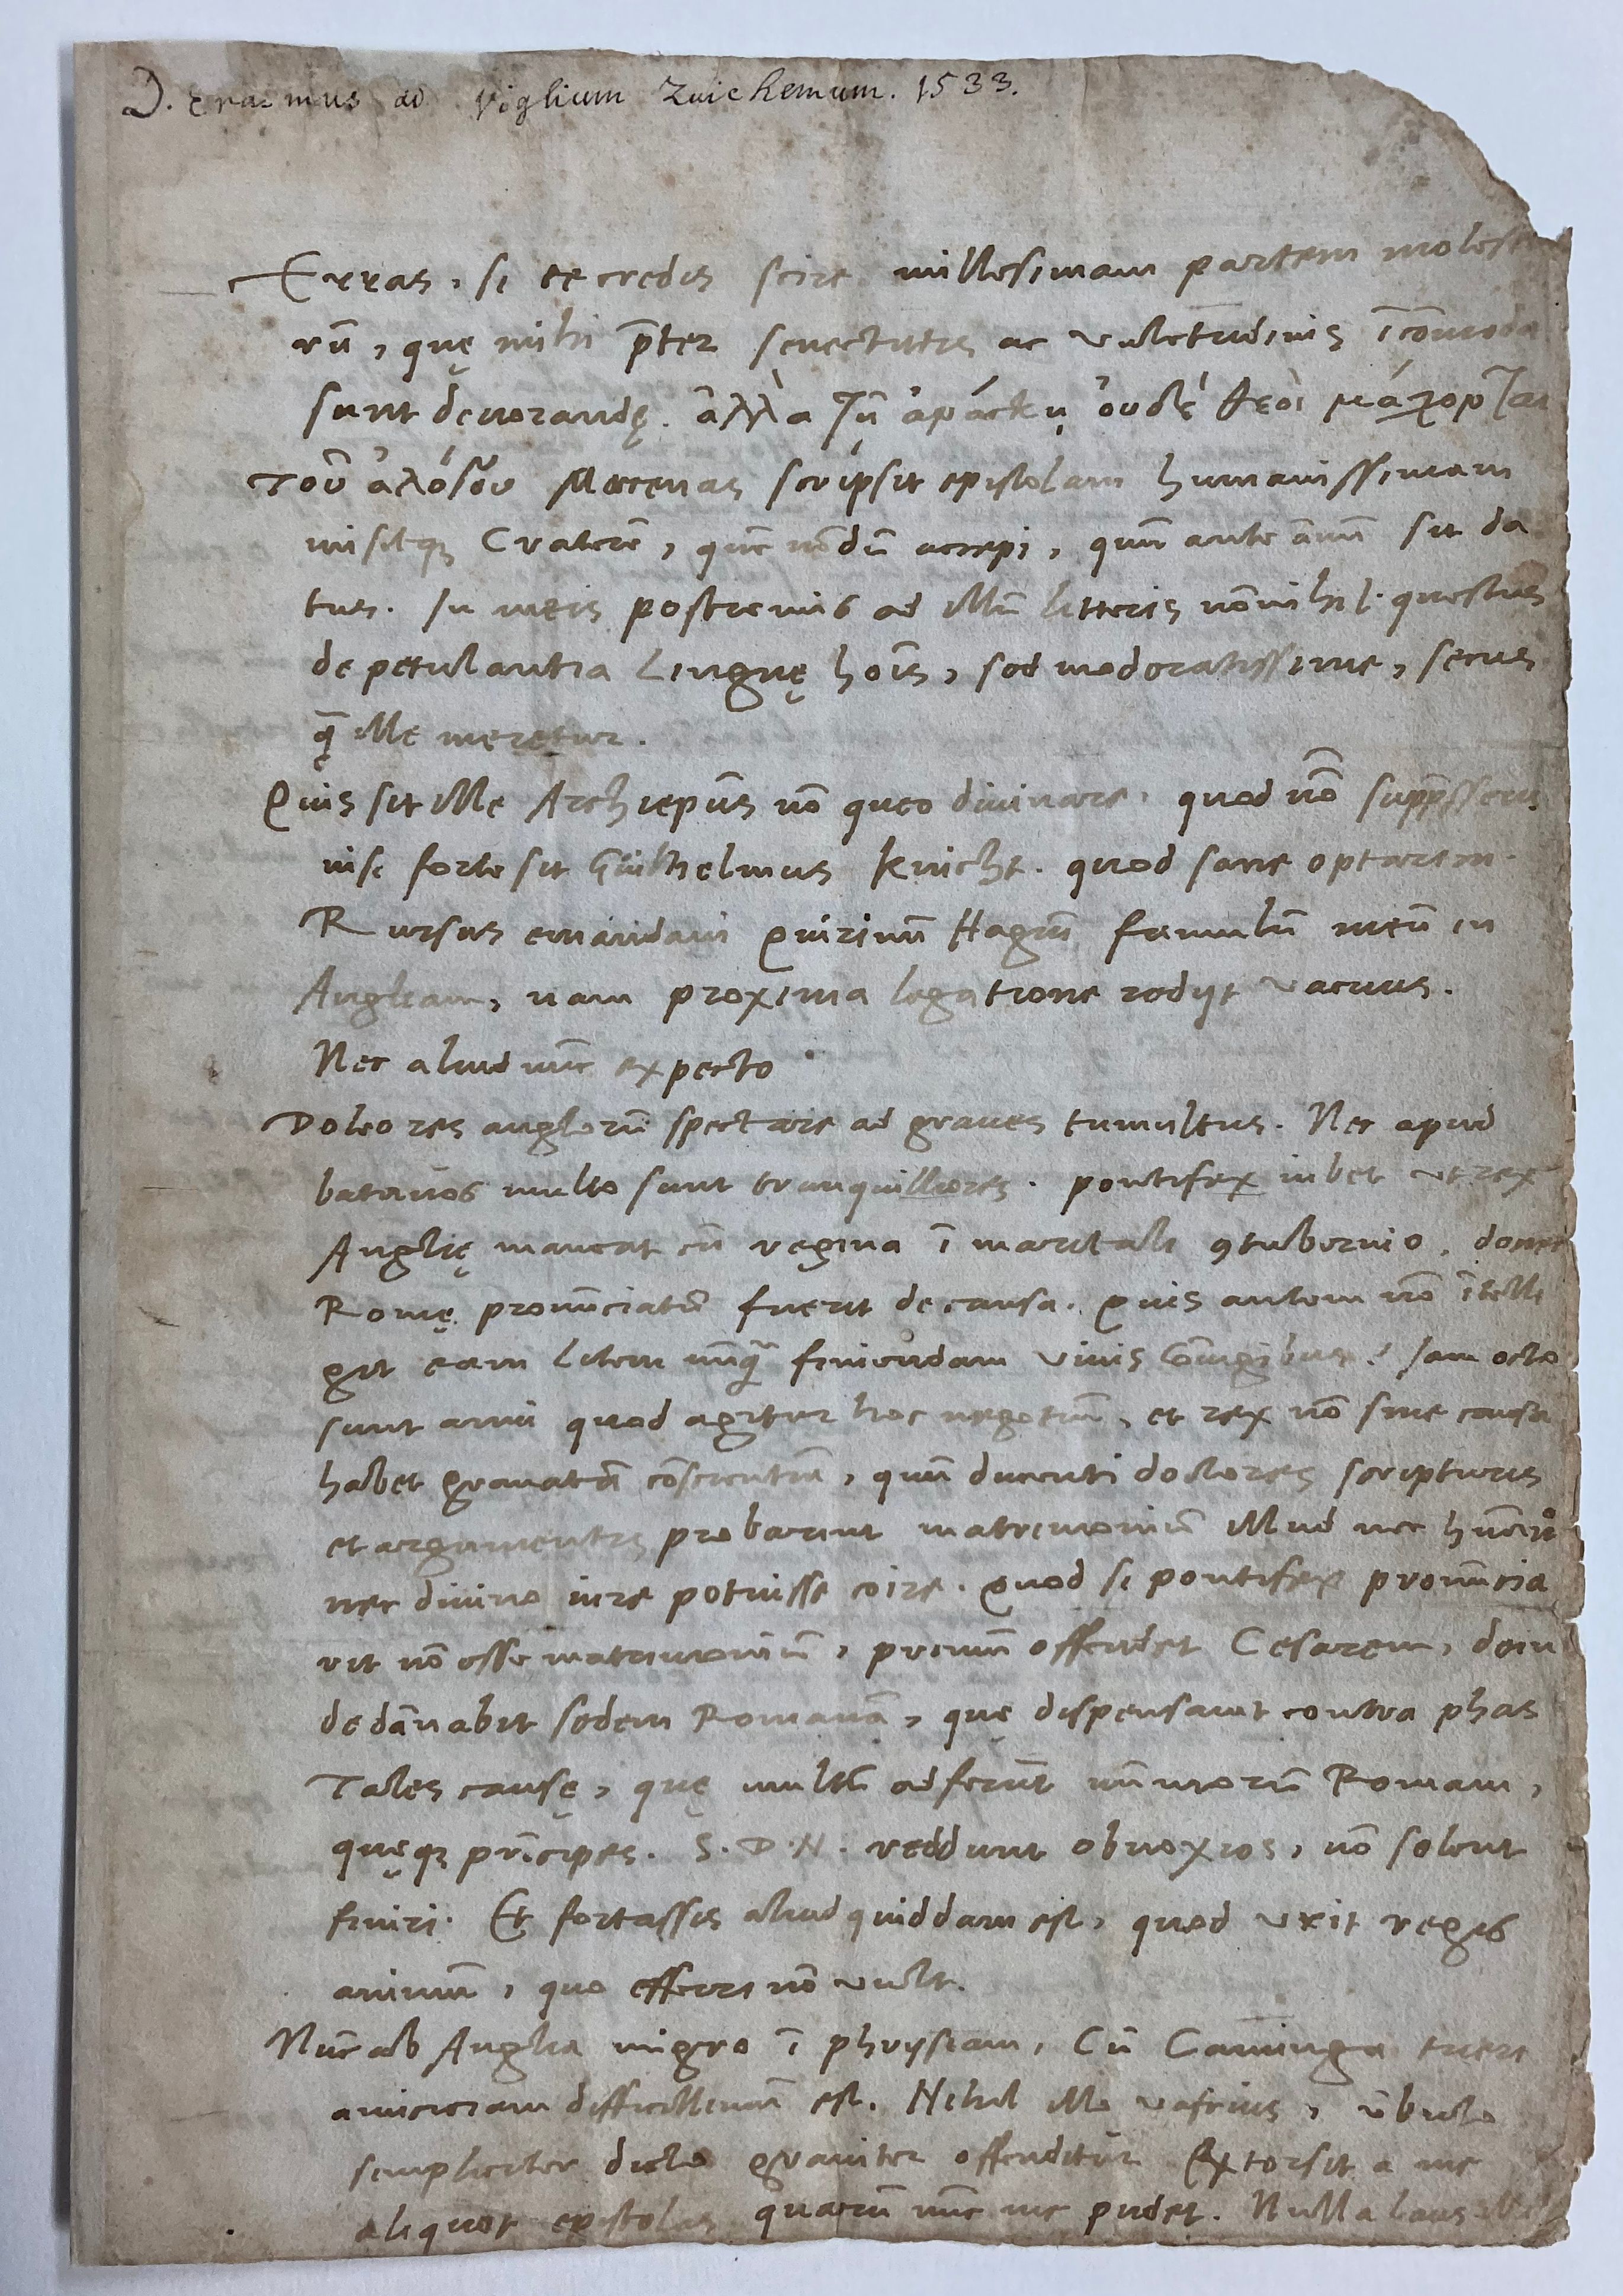 D. Erasmus ad Viglium Zuichemum. 1533.
Erras, si te credis scire millesimam partem molest
rū, quę mihi p̄ter senectutis ac valetudinis īcōmoda
sunt deuorandę. ἀλλὰ τῇ ἀνάγκῃ οὐδὲ θεοὶ μάχονται
τοῦ Mecenas scripsit epistolam humanissimam
misitqꝫ Craterē, quē nōdū accepi, quū ante annū sit da
tus. In meis postremis ad illū litteris nōnihil questus
de petulantia linguę hoīs, sed moderatissime, secus
q̄ ille meretur.
Quis sit ille Archiep̄us nō queo diuinare, quod nō supp̄sseris
nisi forte sit Guilhelmus Knicht. quod sane optarim.
Rursus emandaui Quirinū Hagiū famulū meū in
Angliam, nam proxima legatione redijt vacuus.
Nec aliud nūc expecto
Doleo res anglorū spectare ad graues tumultus. Nec apud
batauos multo sunt tranquilliores. pontifex iubet vt rex
Anglię maneat cū regina ī maritali ꝯtubernio, donec
Romę pronūciatū fuerit de causa. Quis autem nō ītelli
git eam litem nūq̄ finiendam viuis cōiugibus? Iam octo
sunt anni quod agitur hoc negotiū, et rex nō sine causa
habet grauatā cōscientiā, quū ducenti doctores scripturis
et argumentis probarint matrimoniū illud nec hūano
nec diuino iure potuisse coire. Quod si pontifex pronūcia
rit nō esse matrimoniū, primū offendet Cesarem, dein
de dānabit sedem Romanā, quę dispensauit contra phas
Tales causę, quę multū adferūt nūmorū Romam,
quęqꝫ prīcipes. S. D. N. reddunt obnoxios, nō solent
finiri. Et fortassis aliud quiddam est, quod vrit regis
animū, quo efferri nō vult.
Nūc ab Anglia migro ī phrysiam, Cū Caminga tueri
amiciciam difficillimū est. Nihil illo vafrius, verbulo
simpliciter dicto grauiter offenditur Extorsit a me
aliquot epistolas quarū nūc me pudet. Nulla laus illi